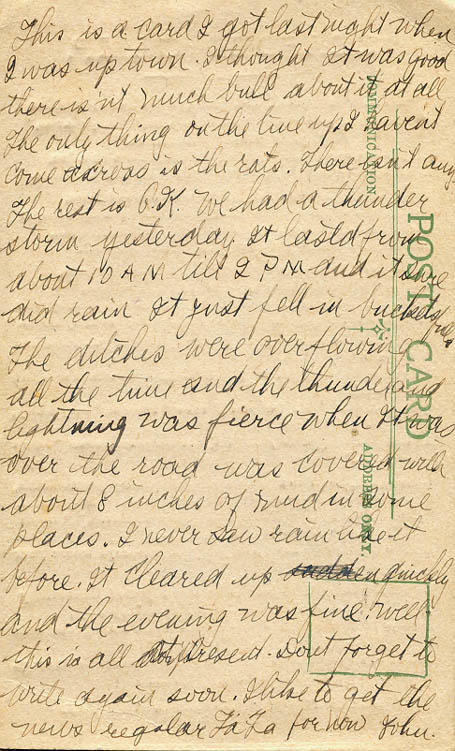 This is a card I got last night when
I was up town. I thought It was good
there is'nt much bull about it at all
The only thing on the line up I haven't
come across is the rats. There isn't any
The rest is O.K. We had a thunder
storm yesterday It lastd from
about 10 AM till 2 PM and it sure
did rain It just fell in bucketsfull.
The ditches were overflowing
all the time and the thunder and
lightning was fierce when It was
over the road was covered with
about 8 inches of mud in some
places. I never saw rain like it
before. It cleared up sudden quickly
and the evening was fine. well
this is all at present. Dont forget to
write again soon. I like to get the
news regular TaTa for now John.
COMMUNICATION
POST CARD
ADDRESS ONLY